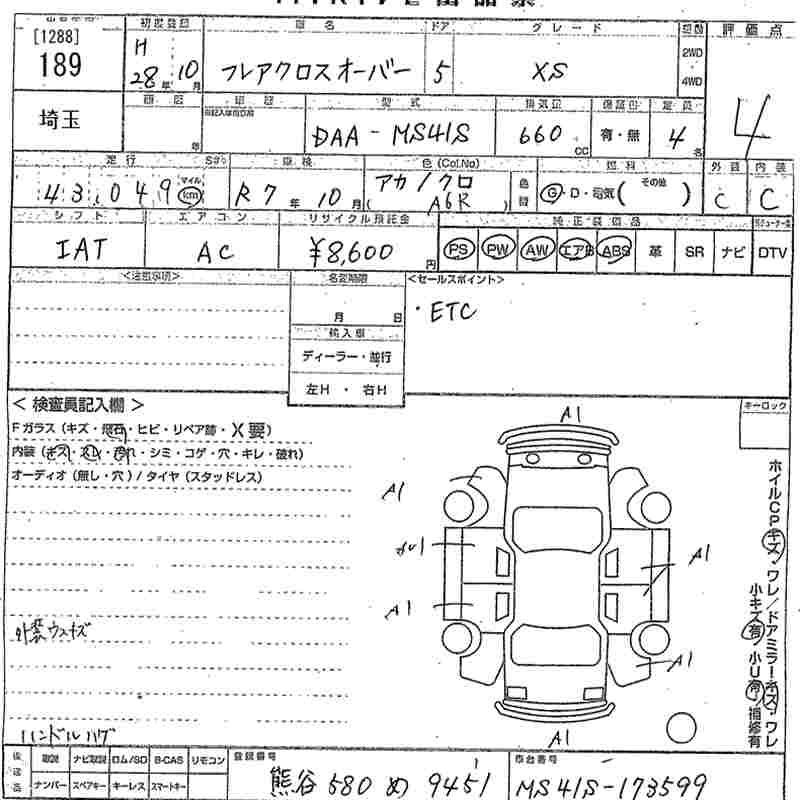 [1288]
189
初度登録 車名 ドア グレード 駆動 評価点
H 28年 10月 フレアクロスオーバー 5 XS 2WD 4WD 4
埼玉
年
型式 排気量 保証書 定員
DAA-MS41S 660 CC 有・無 4名
走行 車検 色 (Col.No) 燃料 外装 内装
43,049 マイル km R7年 10月 アカ/クロ ( A6R ) 色替 G・D・電気 ( その他 ) C C
シフト エアコン リサイクル預託金 純正装備品
IAT AC ¥8,600円 PS PW AW エアB ABS 革 SR ナビ DTV
<注意事項> 名変期限 <セールスポイント>
月 日 ・ETC
輸入車
ディーラー・並行
左H ・ 右H
< 検査員記入欄 > キーロック
Fガラス (キズ・飛石・ヒビ・リペア跡・X要)
内装 (キズ・スレ・汚れ・シミ・コゲ・穴・キレ・破れ)
オーディオ (無し・穴) / タイヤ (スタッドレス)
A1
A1
A1
A1
A1
A1
ホイルCPキズ・ワレ/ドアミラーキズ・ワレ
小キズ有・小U有・補修有
外装ウスキズ
ハンドルハゲ
後送品 取説 ナビ取説 ロム/SD B-CAS リモコン 登録番号 車台番号
ナンバー スペアキー キーレス スマートキー 熊谷 580 め 9451 MS41S-173599